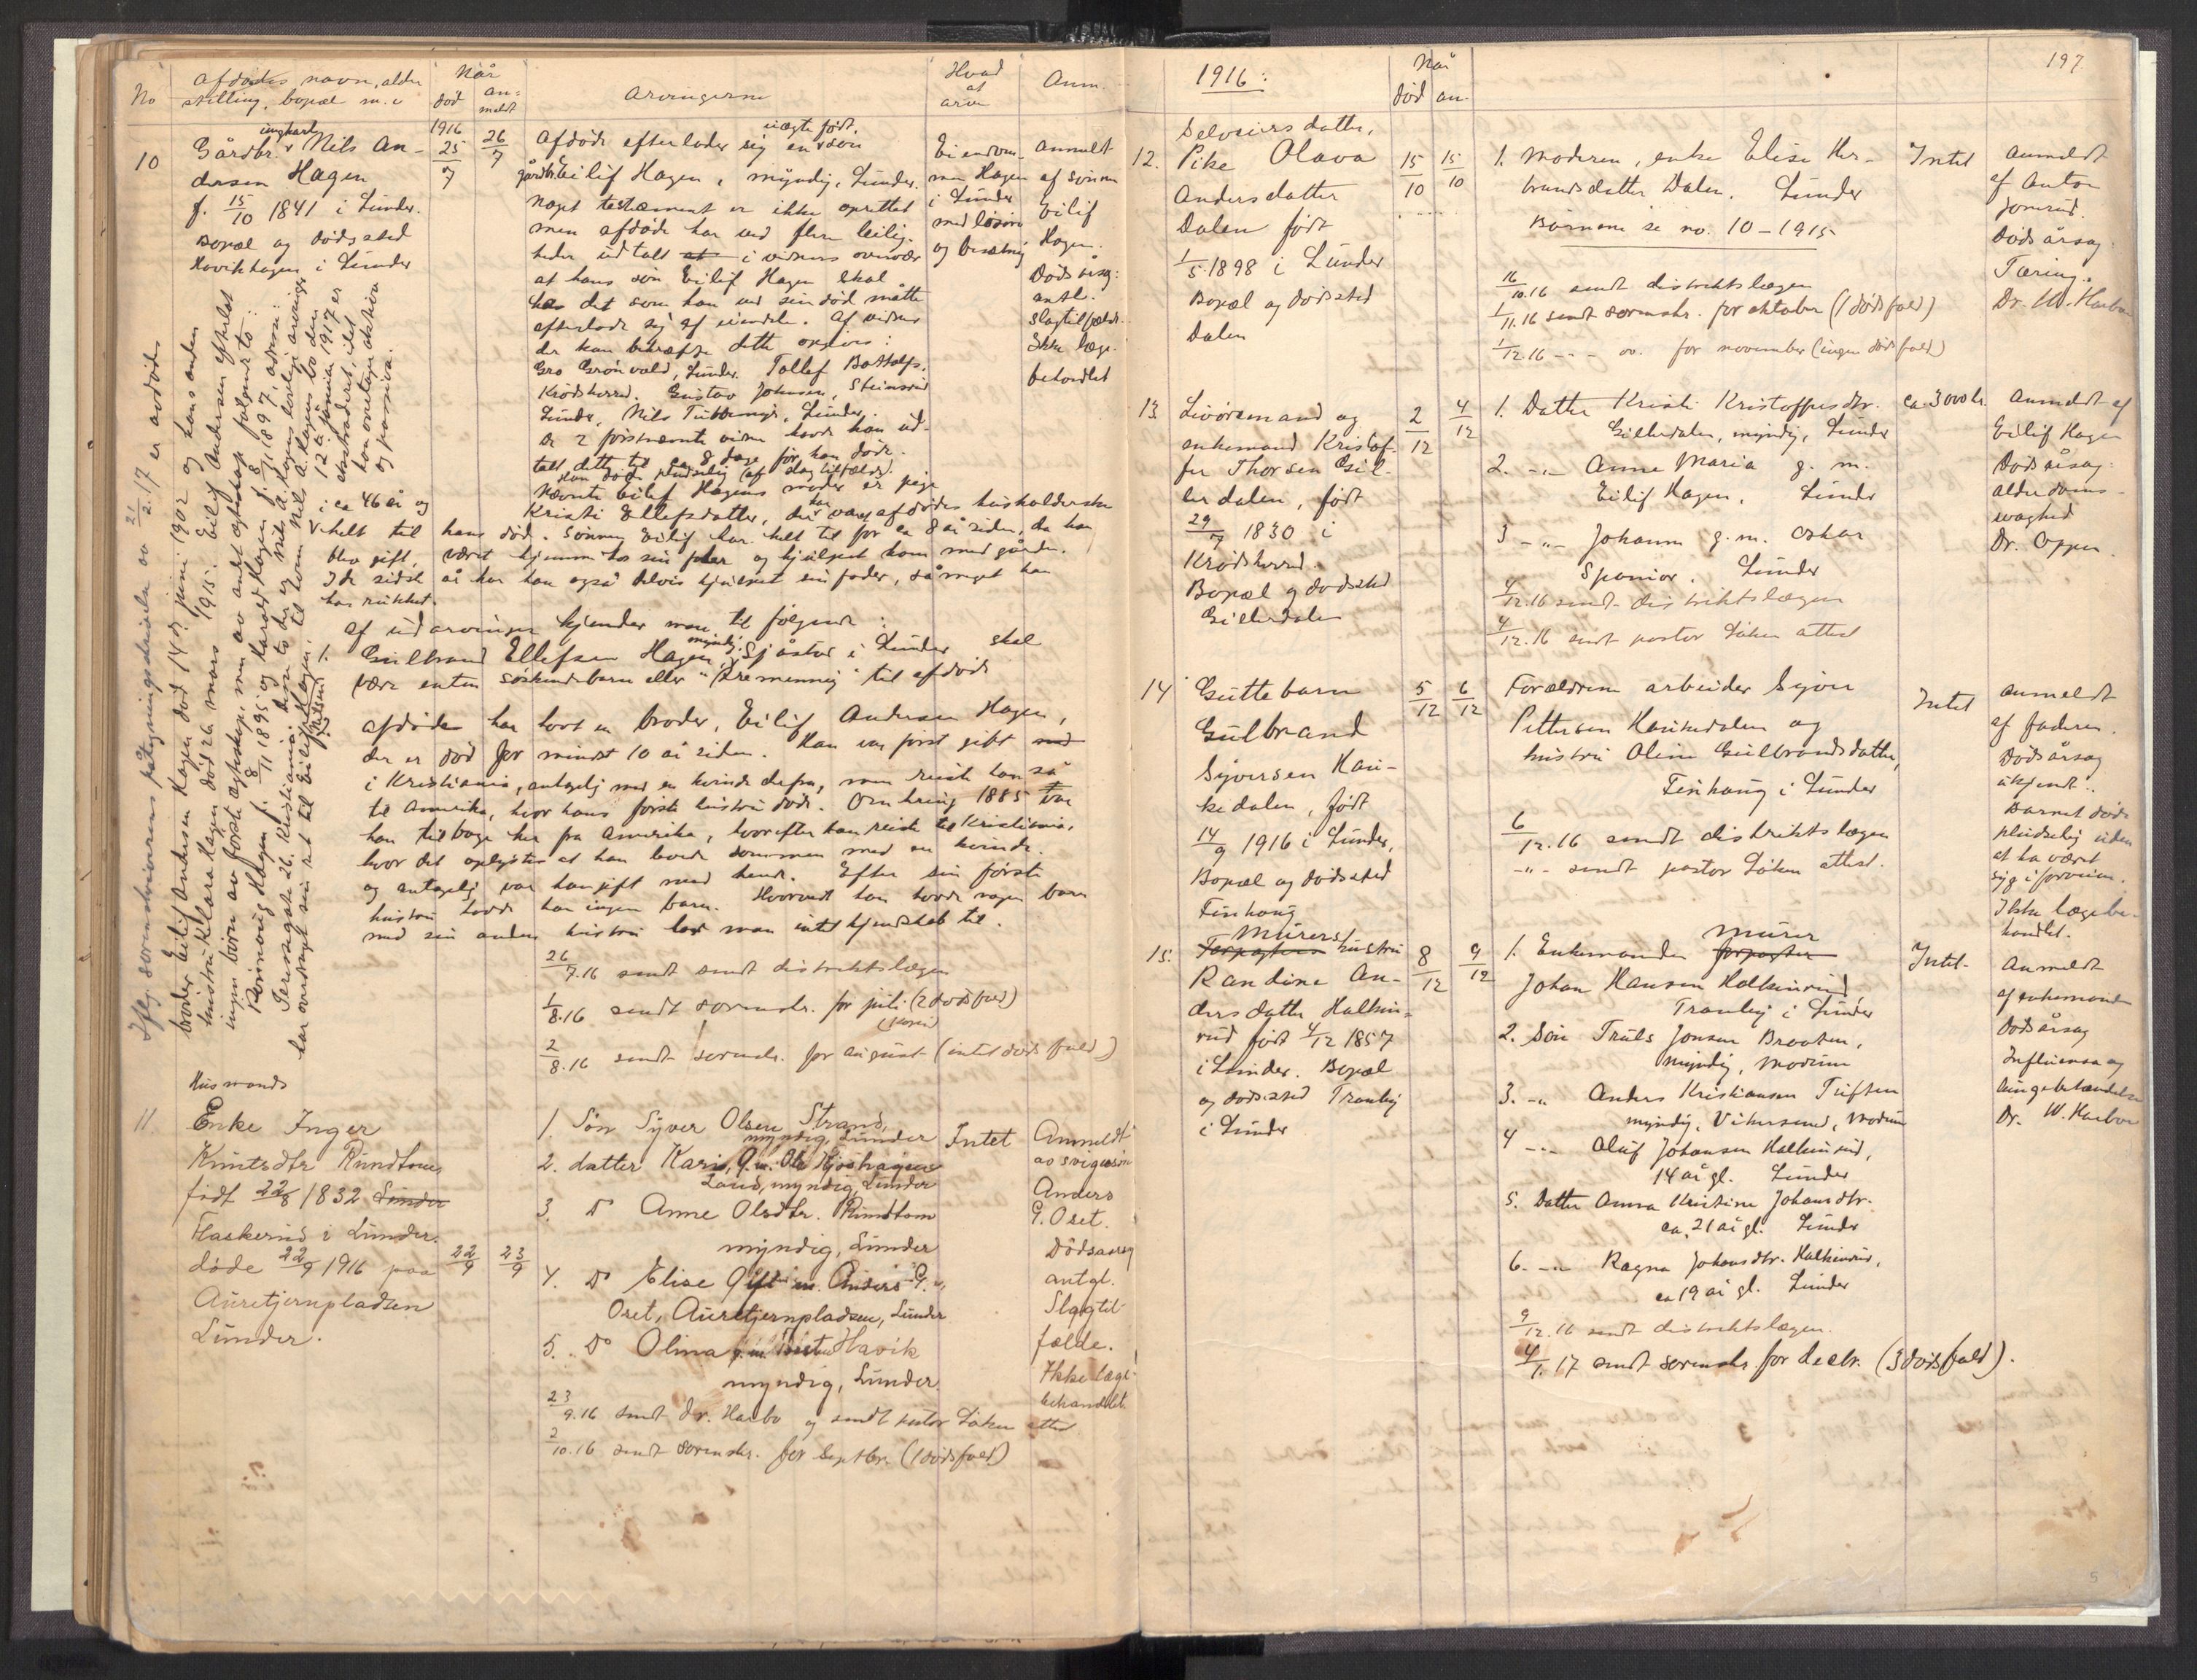 No
afdødes navn, alder
stilling, bopæl m.v
Når
død
an-
meldt
Arvingerne
Hvad
at
arve
Anm.
10
ungkarl
Gårdbr. Nils An-
dersen Hagen
f. 15/10 1841 i Lunder.
Bopæl og dødssted
Hovikhagen i Lunder
1916
25/7
26/7
uægte født.
Afdøde efterlader sig en søn
gårdbr. Eilif Hagen, myndig, Lunder.
Noget testament er ikke oprettet
men afdøde har ved flere leilig-
heder udtalt at i vidners overvær
at hans søn Eilif Hagen skal
ha det som han ved sin død måtte
efterlade sig af eiendele. Af vidner
der kan bekræfte dette opgives:
Gro Grönvold, Lunder. Tollef Bottolfs.
Krødsherred. Gustav Johnsen, Steinsrud
Lunder, Nils Tubbung, Lunder.
De 2 førstnævnte vidner havde han ud-
talt dette til ca 8 dage før han døde.
Han døde pludselig af slagtilfælde.
Nævnte Eilif Hagens moder er pige
Kristi Ellefsdatter, der har været afdødes husholderske
i ca 46 år og
helt til hans død. Sønnen Eilif har helt til for ca 8 år siden, da han
blev gift, været hjemme hos sin fader og hjulpet ham med gården.
I de sidste år har han også delvis hjulpet sin fader, så meget han
har rukket.
Af udarvinger kjender man til følgende:
1. Gulbrand Ellefsen Hagen, myndig, Sjåstad i Lunder skal
være enten søskendebarn eller "tremenning" til afdøde
Afdøde har havt en broder, Eilif Andersen Hagen,
der er død for mindst 10 år siden. Han var først gift med
i Kristiania, antagelig med en kvinde derfra, men reiste han så
til Amerika, hvor hans første hustru døde. Omkring 1885 var
han tilbage her fra Amerika, hvorefter han reiste til Kristiania,
hvor det oplystes at han boede sammen med en kvinde.
og antagelig var han gift med hende. Efter sin første
hustru havde han ingen barn. Hvorvidt han havde nogen barn
med sin anden hustru har man intet kjendskab til.
26/7.16 sendt sendt distriktslægen
1/8.16 sendt sorenskr. for juli (2 dødsfald)
2/8.16 sendt sorenskr. for august (intet dødsfald)
Eiendom-
men Hagen
i Lunder
med løsøre
og besætning
Anmeldt
af sønnen
Eilif
Hagen.
Dødsårsag:
antl.
slagtilfælde.
Ikke læge-
behandlet
Ifølg. sorenskriverens påtegningsskrivelse av 21/2.17 er avdødes
broder Eilif Andersen Hagen død 14de juni 1902 og hans anden
hustru Klara Hagen død 26 mars 1915. Eilif Andersen efterlot
ingen børn av første egteskap, men av andet egteskap følgende to:
Rönnaug Hagen f. 8/11 1895 og Harald Hagen f. 8/7 1897, adresse:
Teressgate 26, Kristiania. Disse to er og Nils A. Hagens lovlige arvinger
har overdraget sin ret til Eilif Hagen, til hvem Nils A. Hagens bo den
12te januar 1917 er
ekstraderet, idet
han overtager aktiva
og passiva.
11.
Husmands
Enke Inger
Knutsdtr Rundtom
født 22/8 1832 Lunder
Flaskerud i Lunder.
døde 22/9 1916 paa
Auretjernpladsen
Lunder.
22/9
23/9
1. Søn Syver Olsen Strand,
myndig, Lunder
2. datter Kari, g.m. Ole Kjoshagen
Land, myndig, Lunder
3. Do Anne Olsdtr. Rundtom
myndig, Lunder
4. Do Elise Gift m. Anders G.
Oset, Auretjernpladsen, Lunder
5. Do Olina Havik
myndig, Lunder
23/9.16 sendt dr. Harbo og sendt pastor Løken attest
2/10.16 sendt sorenskr. for septbr. (1 dødsfald)
Intet
Anmeldt
av svigersøn
Anders
G. Oset.
Dödsaarsag
antgl.
Slagtil-
fælde.
Ikke læge-
behandlet
197
1916:
Når
død
an-
12.
Selveiersdatter,
Pike Olava
Andersdatter
Dalen født
1/5.1898 i Lunder
Bopæl og dødssted
Dalen
15/10
15/10
1. Moderen, enke Elise Her-
brandsdatter Dalen. Lunder
Børnene se no. 10-1915
16/10.16 sendt distriktslægen
1/11.16 sendt sorenskr. for oktober (1 dødsfald)
1/12.16 -"- so. for november (ingen dødsfald)
Intet
Anmeldt
af Anton
Jonsrud.
Dødsårsag
Tæring.
Dr. W. Harbo
13.
Livöremand og
enkemand Kristof-
fer Thorsen Gil-
lerdalen, født
29/7 1830 i
Krødsherred.
Bopæl og dødssted
Gillerdalen
2/12
4/12
1. Datter Kristi Kristoffersdtr.
Gillerdalen, myndig, Lunder
2. -"- Anne Maria g. m.
Eilif Hagen, Lunder
3 -"- Johanne g. m. Oskar
Sponior. Lunder
4/12.16 sendt distriktslægen
4/12.16 sendt pastor Løken attest
ca 3000 kr.
Anmeldt af
Eilif Hagen
Dødsårsag:
alderdoms-
svaghed
Dr. Oppen.
14
Guttebarn
Gulbrand
Syversen Hau-
kedalen, født
14/9 1916 i Lunder,
Bopæl og dødssted
Finhaug
5/12
6/12
Forældrene arbeider Syver
Pettersen Haukedalen og
hustru Oline Gulbrandsdatter,
Finhaug i Lunder
6/12.16 sendt distriktslægen
-"- sendt pastor Løken attest.
Intet
Anmeldt
af faderen.
Dødsårsag
ukjendt.
Barnet døde
pludselig uden
at ha været
syg i forveien.
Ikke lægebe-
handlet.
15.
Murers
Forpagters hustru
Randine An-
dersdatter Halkin-
rud født 4/12 1857
i Lunder. Bopæl
og dødssted Tranby
i Lunder
8/12
9/12
1. Enkemanden forpagter murer
Johan Hansen Halkinrud
Tranby i Lunder
2. Søn Truls Jonsen Braaten,
myndig, Modum
3. -"- Anders Kristiansen Tuften
myndig, Vikersund, Modum
4 -"- Oluf Johansen Halkinrud,
14 år gl. Lunder
5. Datter Anna Kristine Johansdtr.
ca. 21 år gl. Lunder
6. -"- Ragna Johansdtr. Halkinrud,
ca 19 år gl. Lunder
9/12.16 sendt distriktslægen.
4/1.17 sendt sorenskr. for decbr. (3 dødsfald).
Intet.
Anmeldt
af enkemanden
Dødsårsag
Influensa og
lungebetændelse
Dr. W. Harbo
5